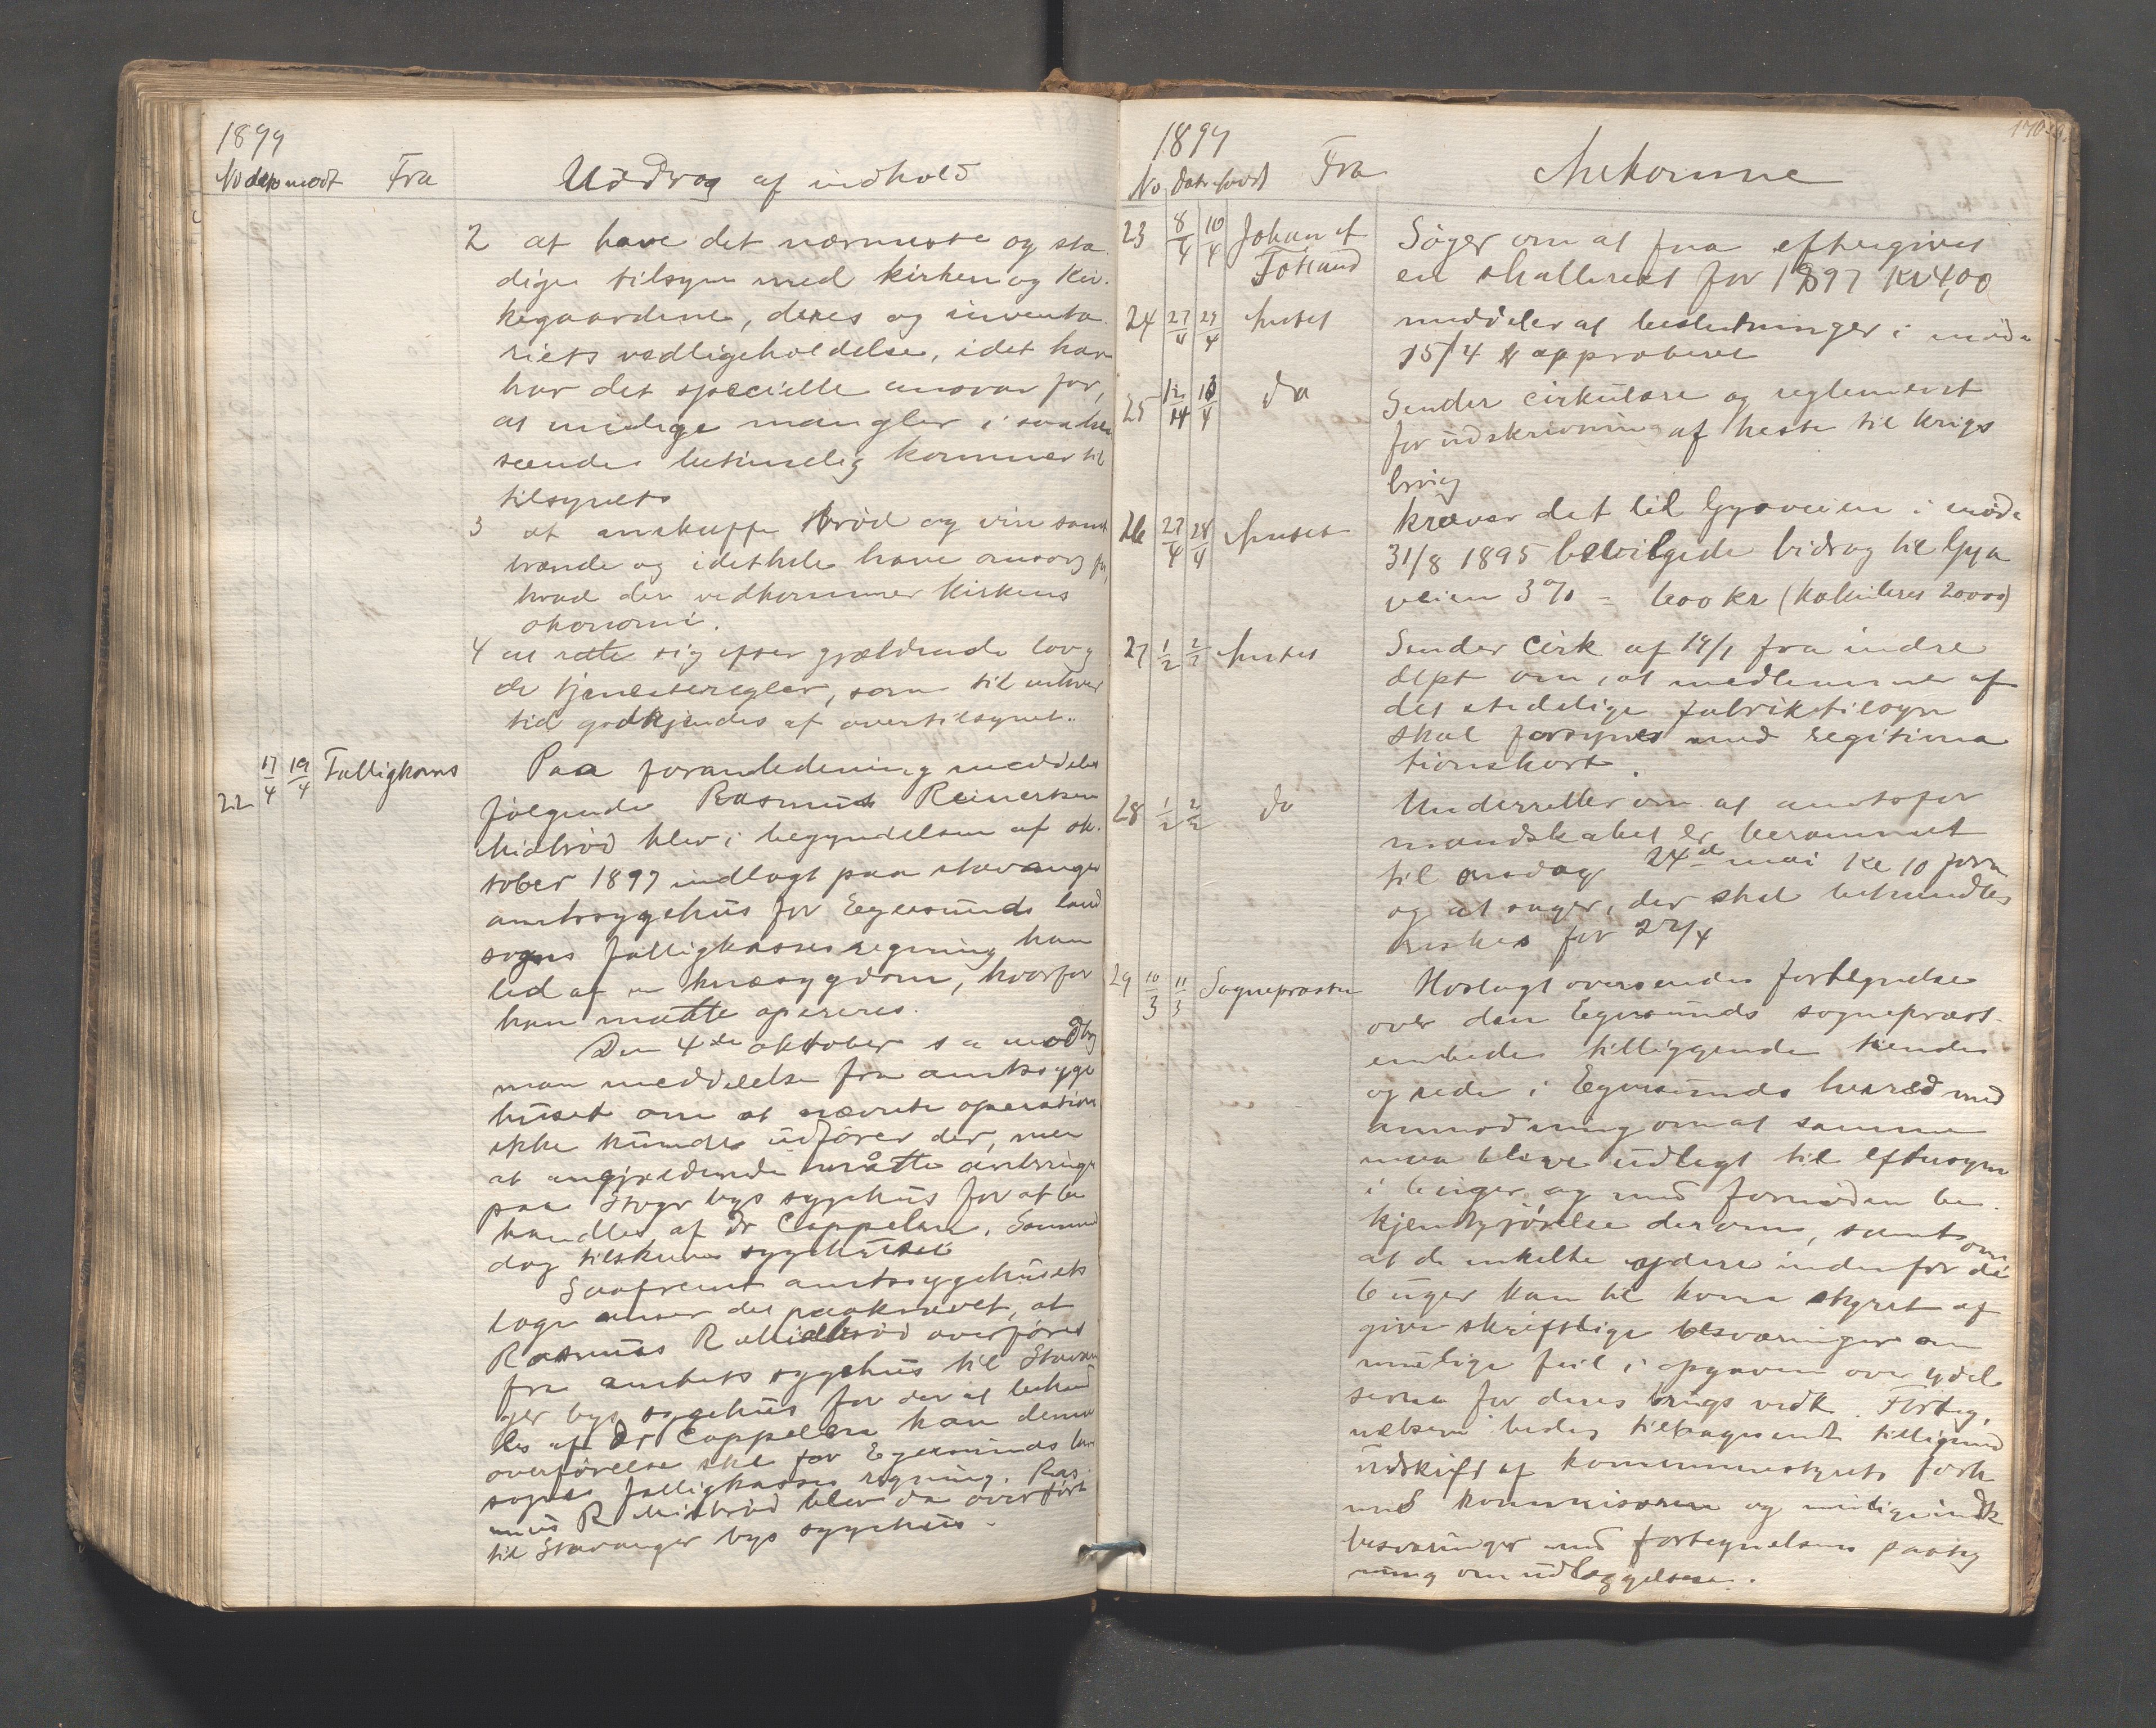 1899
No dato modt Fra Uddrag af indhold
2 at have det nærmeste og sta
dige tilsyn med kirken og kir-
kegaardene, deres og inventa
riets vedligeholdelse, idet han
har det specielle ansvar for,
at mulige mangler i saa hen
seende betimelig kommer til
tilsynets
3 at anskaffe brød og vin samt
brænde og idethele have omsorg for,
hvad der vedkommer kirkens
økonomi.
4 at rette sig efter gjældende lov og
de tjenesteregler, som til enhver
tid godkjendes af overtilsynet.
22 17/4 19/4 Fattigkoms Paa foranledening meddeles
følgende Rasmus Reinertsen
Midbrød blev i begyndelsen af ok-
tober 1897 indlagt paa stavanger
amtssygehus for Egersunds land
sogns fattigkasses regning han
led af en knæsygdom, hvorfor
han matte opereres.
Den 4de oktober s a modtog
man meddelelse fra amtssyge
huset om at nævnte operation
ikke kunde udføres der, men
at angjældende måtte anbringes
paa Stvgr bys sygehus for at be
handles af Dr Cappelen. Samme
dag tilskrev sygehuset
Saafremt amtssygehusets
læge anser det paakrævet, at
Rasmus R Midbrød overføres
fra amtets sygehus til Stavan
ger bys sygehus for der at behand
les af Dr Cappelen kan denne
overførelse ske for Egersunds land
sogns fattigkasses regning. Ras
mus R Midbrød blev da overført
til Stavanger bys sygehus.
1899 170
No Dato modt Fra Ankomne
23 8/4 10/4 Johan et
Fotland Søger om at faa eftergivet
en skatterest for 1897 Kr 4,00
24 27/4 29/4 Amtet meddeler at beslutninger i møde
15/4 er approberet
25 12/4 13/4 do Sender cirkulære og reglement
for udskrivning af heste til krigs
brug
26 27/4 28/4 Amtet kræver det til Gyaveien i møde
31/8 1895 bevilgede bidrag til Gya
veien 3% = 600 kr (kalkuleres 20000)
27 1/2 2/2 Amtet Sender Cirk af 19/1 fra indre
dept om, at medlemmer af
det stedelige fabriktilsyn
skal forsynes med legitima
tionskort.
28 1/2 2/2 do Underretter om at amtsfor
mandskabet er berammet
til onsdag 24de mai kl 10 form
og at sager, der skal behandles
ønskes før 22/4
29 10/3 11/3 Sognepresten Hoslagt oversendes fortegnelse
over den Egersunds sogneprest-
embedes tilliggende tiender
og rede i Egersunds herred med
anmodning om at samme
maa blive udlagt til eftersyn
i 6 uger og med fornøden be-
kjendtgjørelse derom, samt om
at de enkelte ydere indenfor de
6 uger kan til kom styret af
give skriftlige besværinger om
mulige feil i opgaven over ydel
serne for deres brugs vedk. Forteg,
nelsen bedes tilbagesendt tilligemed
udskrift af kommunestyrets forh
med kommisonen og mulige indk
besværinger med fortegnelsens paateg
ning om udlæggelsen.